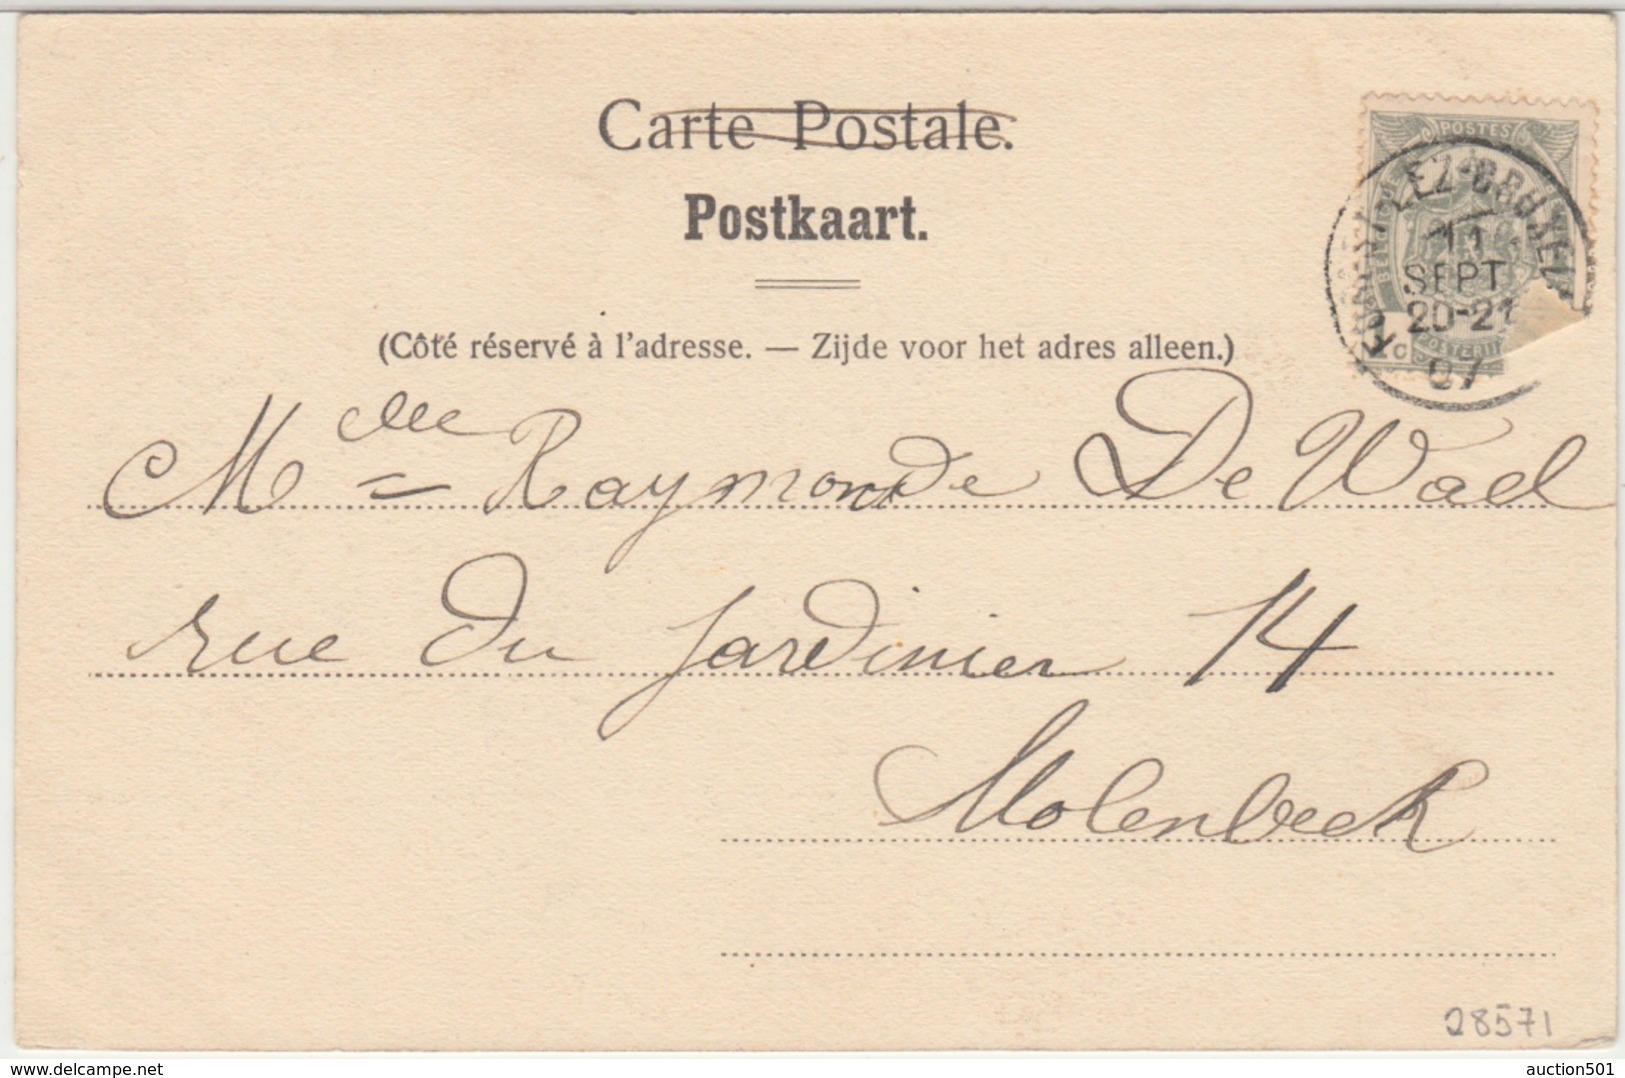 Carte Postale.
Postkaart.
(Côté réservé à l'adresse. — Zijde voor het adres alleen.)
POSTES
LEZ-BRUXEL
11
SEPT
20-21
07
POSTERIJ
Melle Raymonde De Wael
rue du Jardinier 14
Molenbeek
28571
www.delcampe.net
auction501